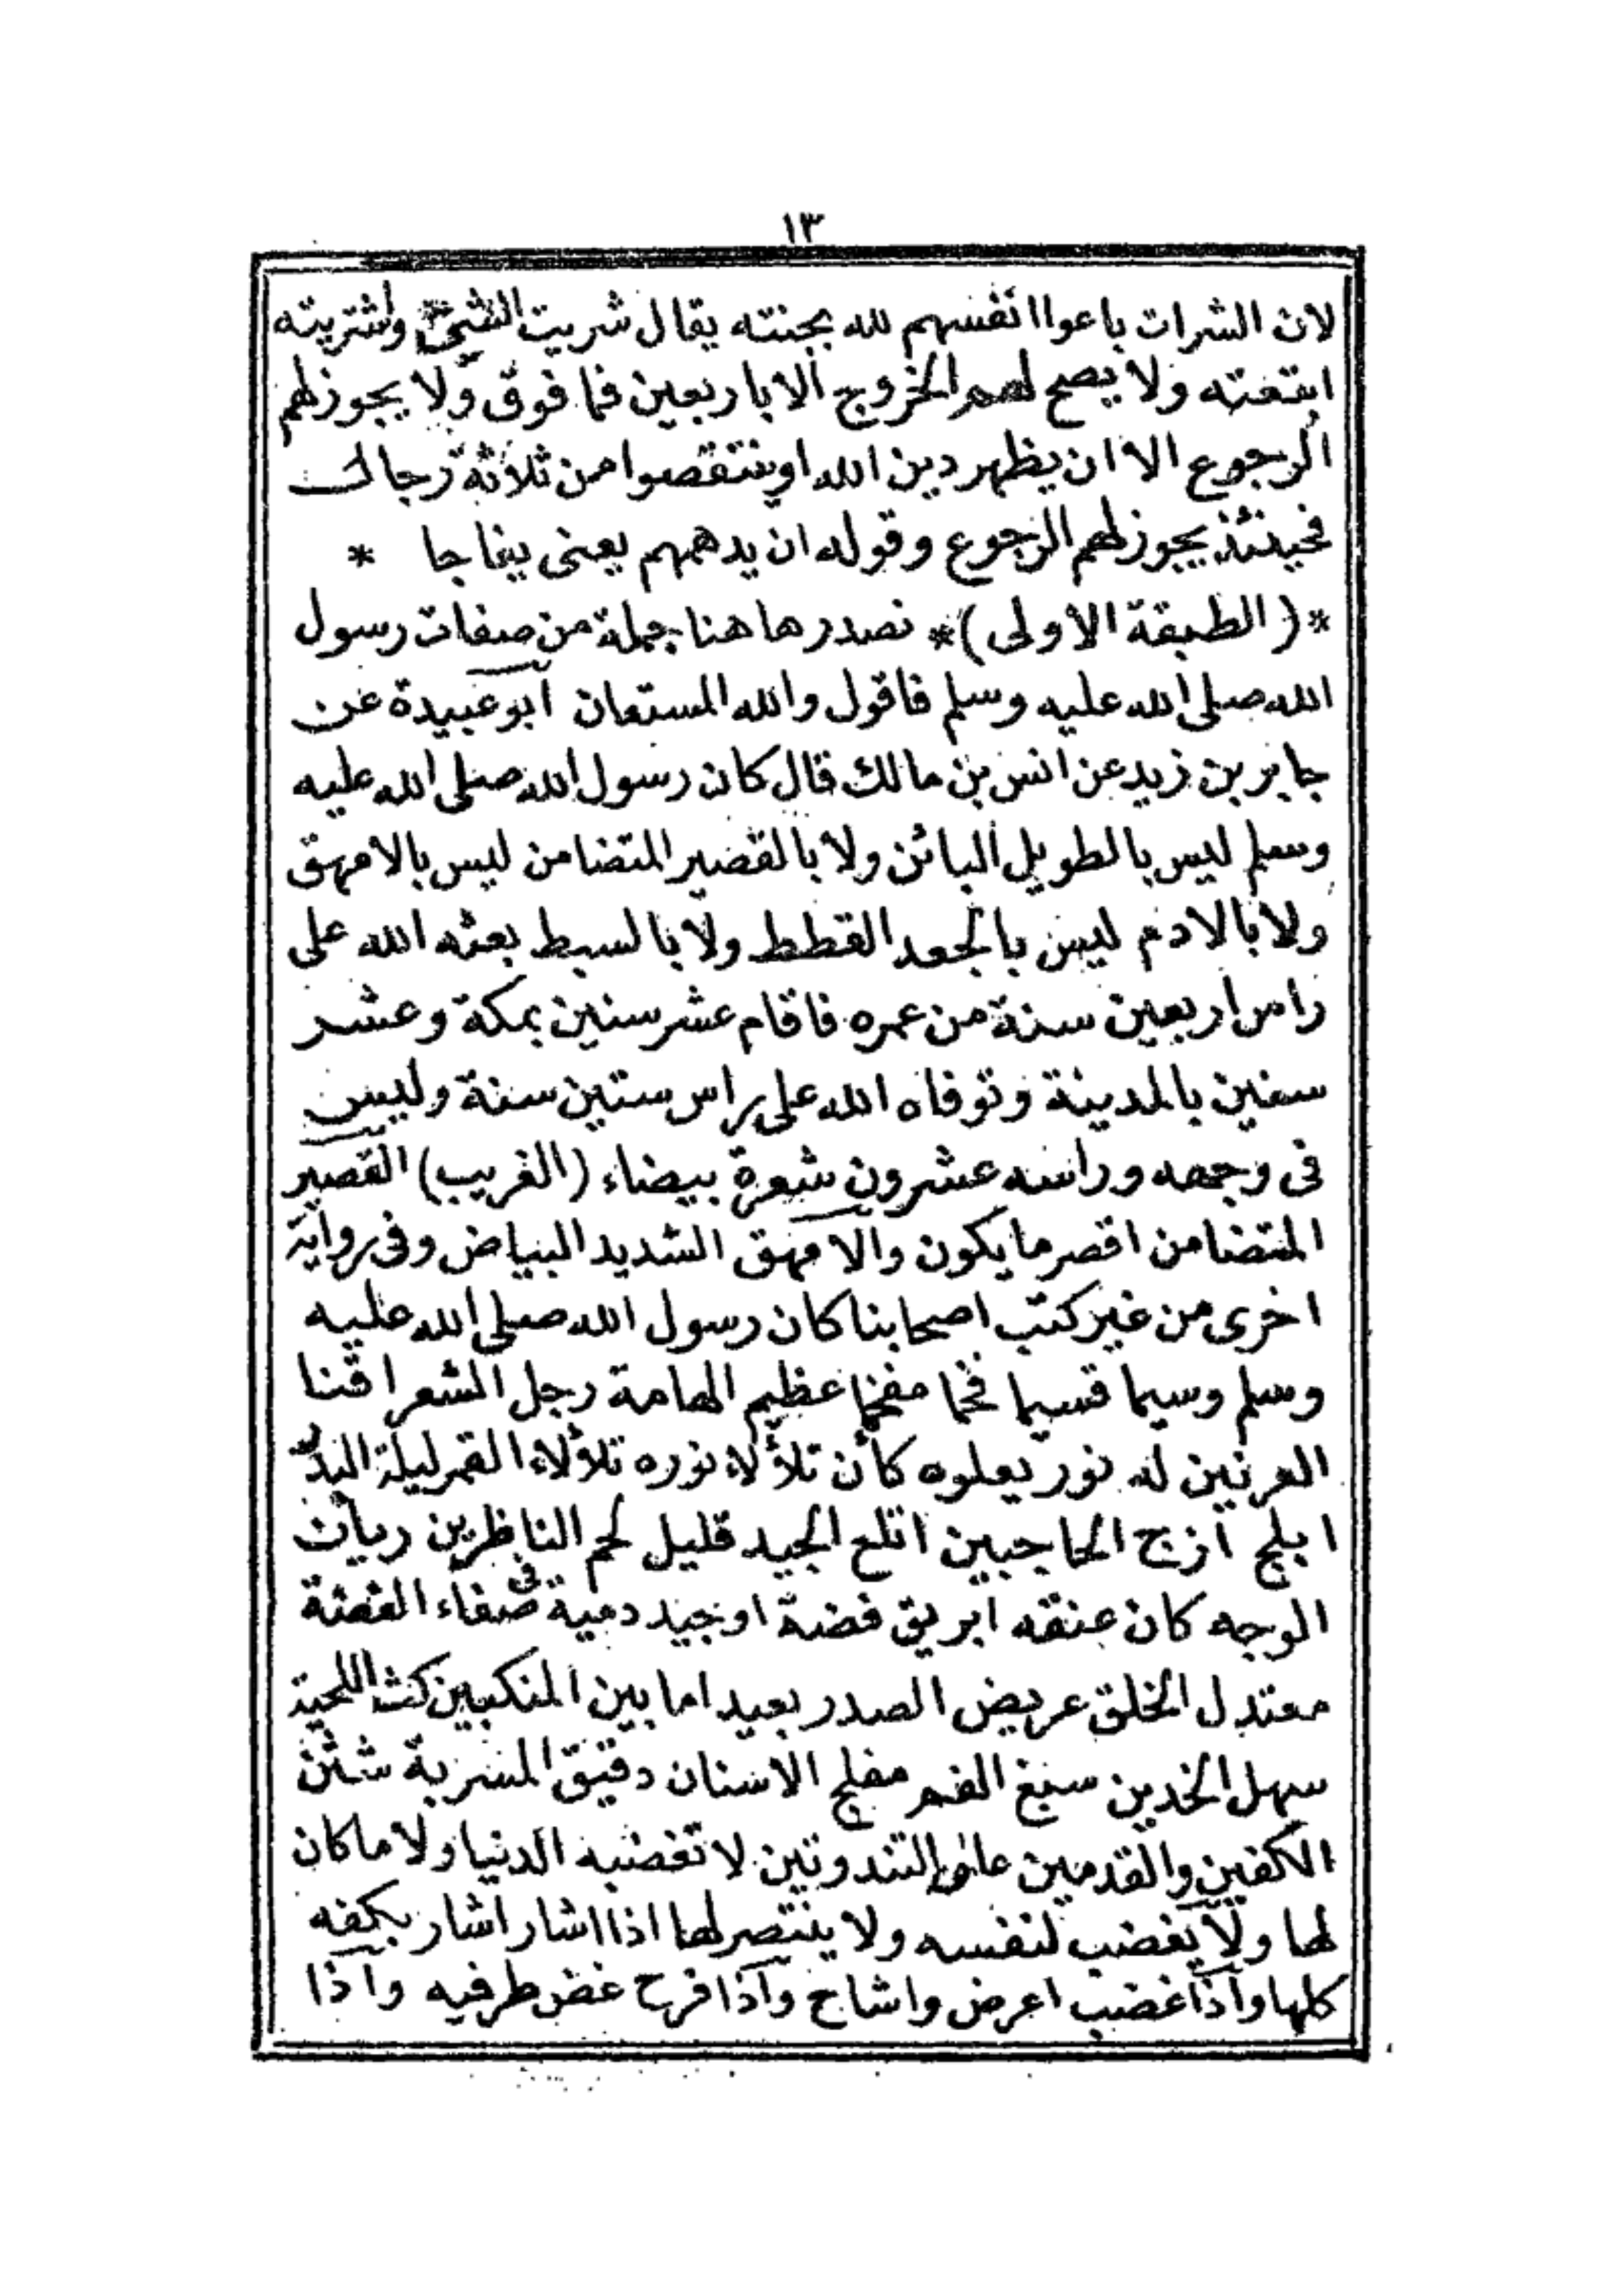 ١٣
لان الشرات باعوا انفسهم لله بجنته يقال شريت الشئ واشتريته
ابتعته ولا يصح لهم الخروج الا باربعين فما فوق ولا يجوز لهم
الرجوع الا ان يظهر دين الله او ينتقصوا من ثلاثة رجال
فحينئذ يجوز لهم الرجوع وقوله ان يدهمهم يعنى يفاجا *
*(الطبقة الاولى)* نصدرها هنا جملة من صفات رسول
الله صلى الله عليه وسلم فاقول والله المستعان ابو عبيدة عن
جابر بن زيد عن انس بن مالك قال كان رسول الله صلى الله عليه
وسلم ليس بالطويل البائن ولا بالقصير المتضامن ليس بالامهق
ولا بالادم ليس بالجعد القطط ولا بالسبط بعثه الله على
راس اربعين سنة من عمره فاقام عشر سنين بمكة وعشر
سنين بالمدينة وتوفاه الله على راس ستين سنة وليس
فى وجهه وراسه عشرون شعرة بيضاء (الغريب) القصير
المتضامن اقصر ما يكون والامهق الشديد البياض وفى رواية
اخرى من غير كتب اصحابنا كان رسول الله صلى الله عليه
وسلم وسيما قسيما فخما مفخما عظيم الهامة رجل الشعر اقنا
العرنين له نور يعلوه كأن تلؤلاء نوره تلؤلاء القمر ليلة البدر
ابلج ازج الحاجبين اتلع الجيد قليل لحم الناظرين ريان
الوجه كان عنقه ابريق فضة او جيد دمية فى صفاء الفضة
معتدل الخلق عريض الصدر بعيد اما بين المنكبين كث اللحية
سهل الخدين سبغ الفم مفلج الاسنان دقيق المسربة شثن
الكفين والقدمين التندوتين لا تغضبه الدنيا ولا ما كان
لها ولا يغضب لنفسه ولا ينتصر لها اذا اشار اشار بكفه
كلها واذا غضب اعرض واشاح واذا فرح غض طرفيه واذا